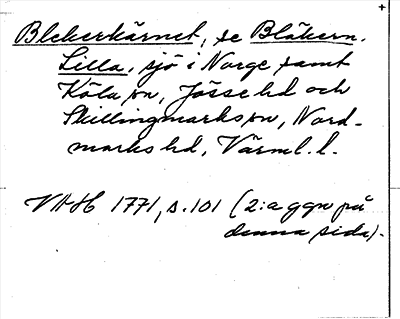 Blekerkärnet, se Bläkern.
Lilla, sjö i Norge samt
Köla sn, Jösse hd och
Skillingmarks sn, Nord-
marks hd, Värml. l.
1771, s. 101 (2:a ggn på
denna sida).